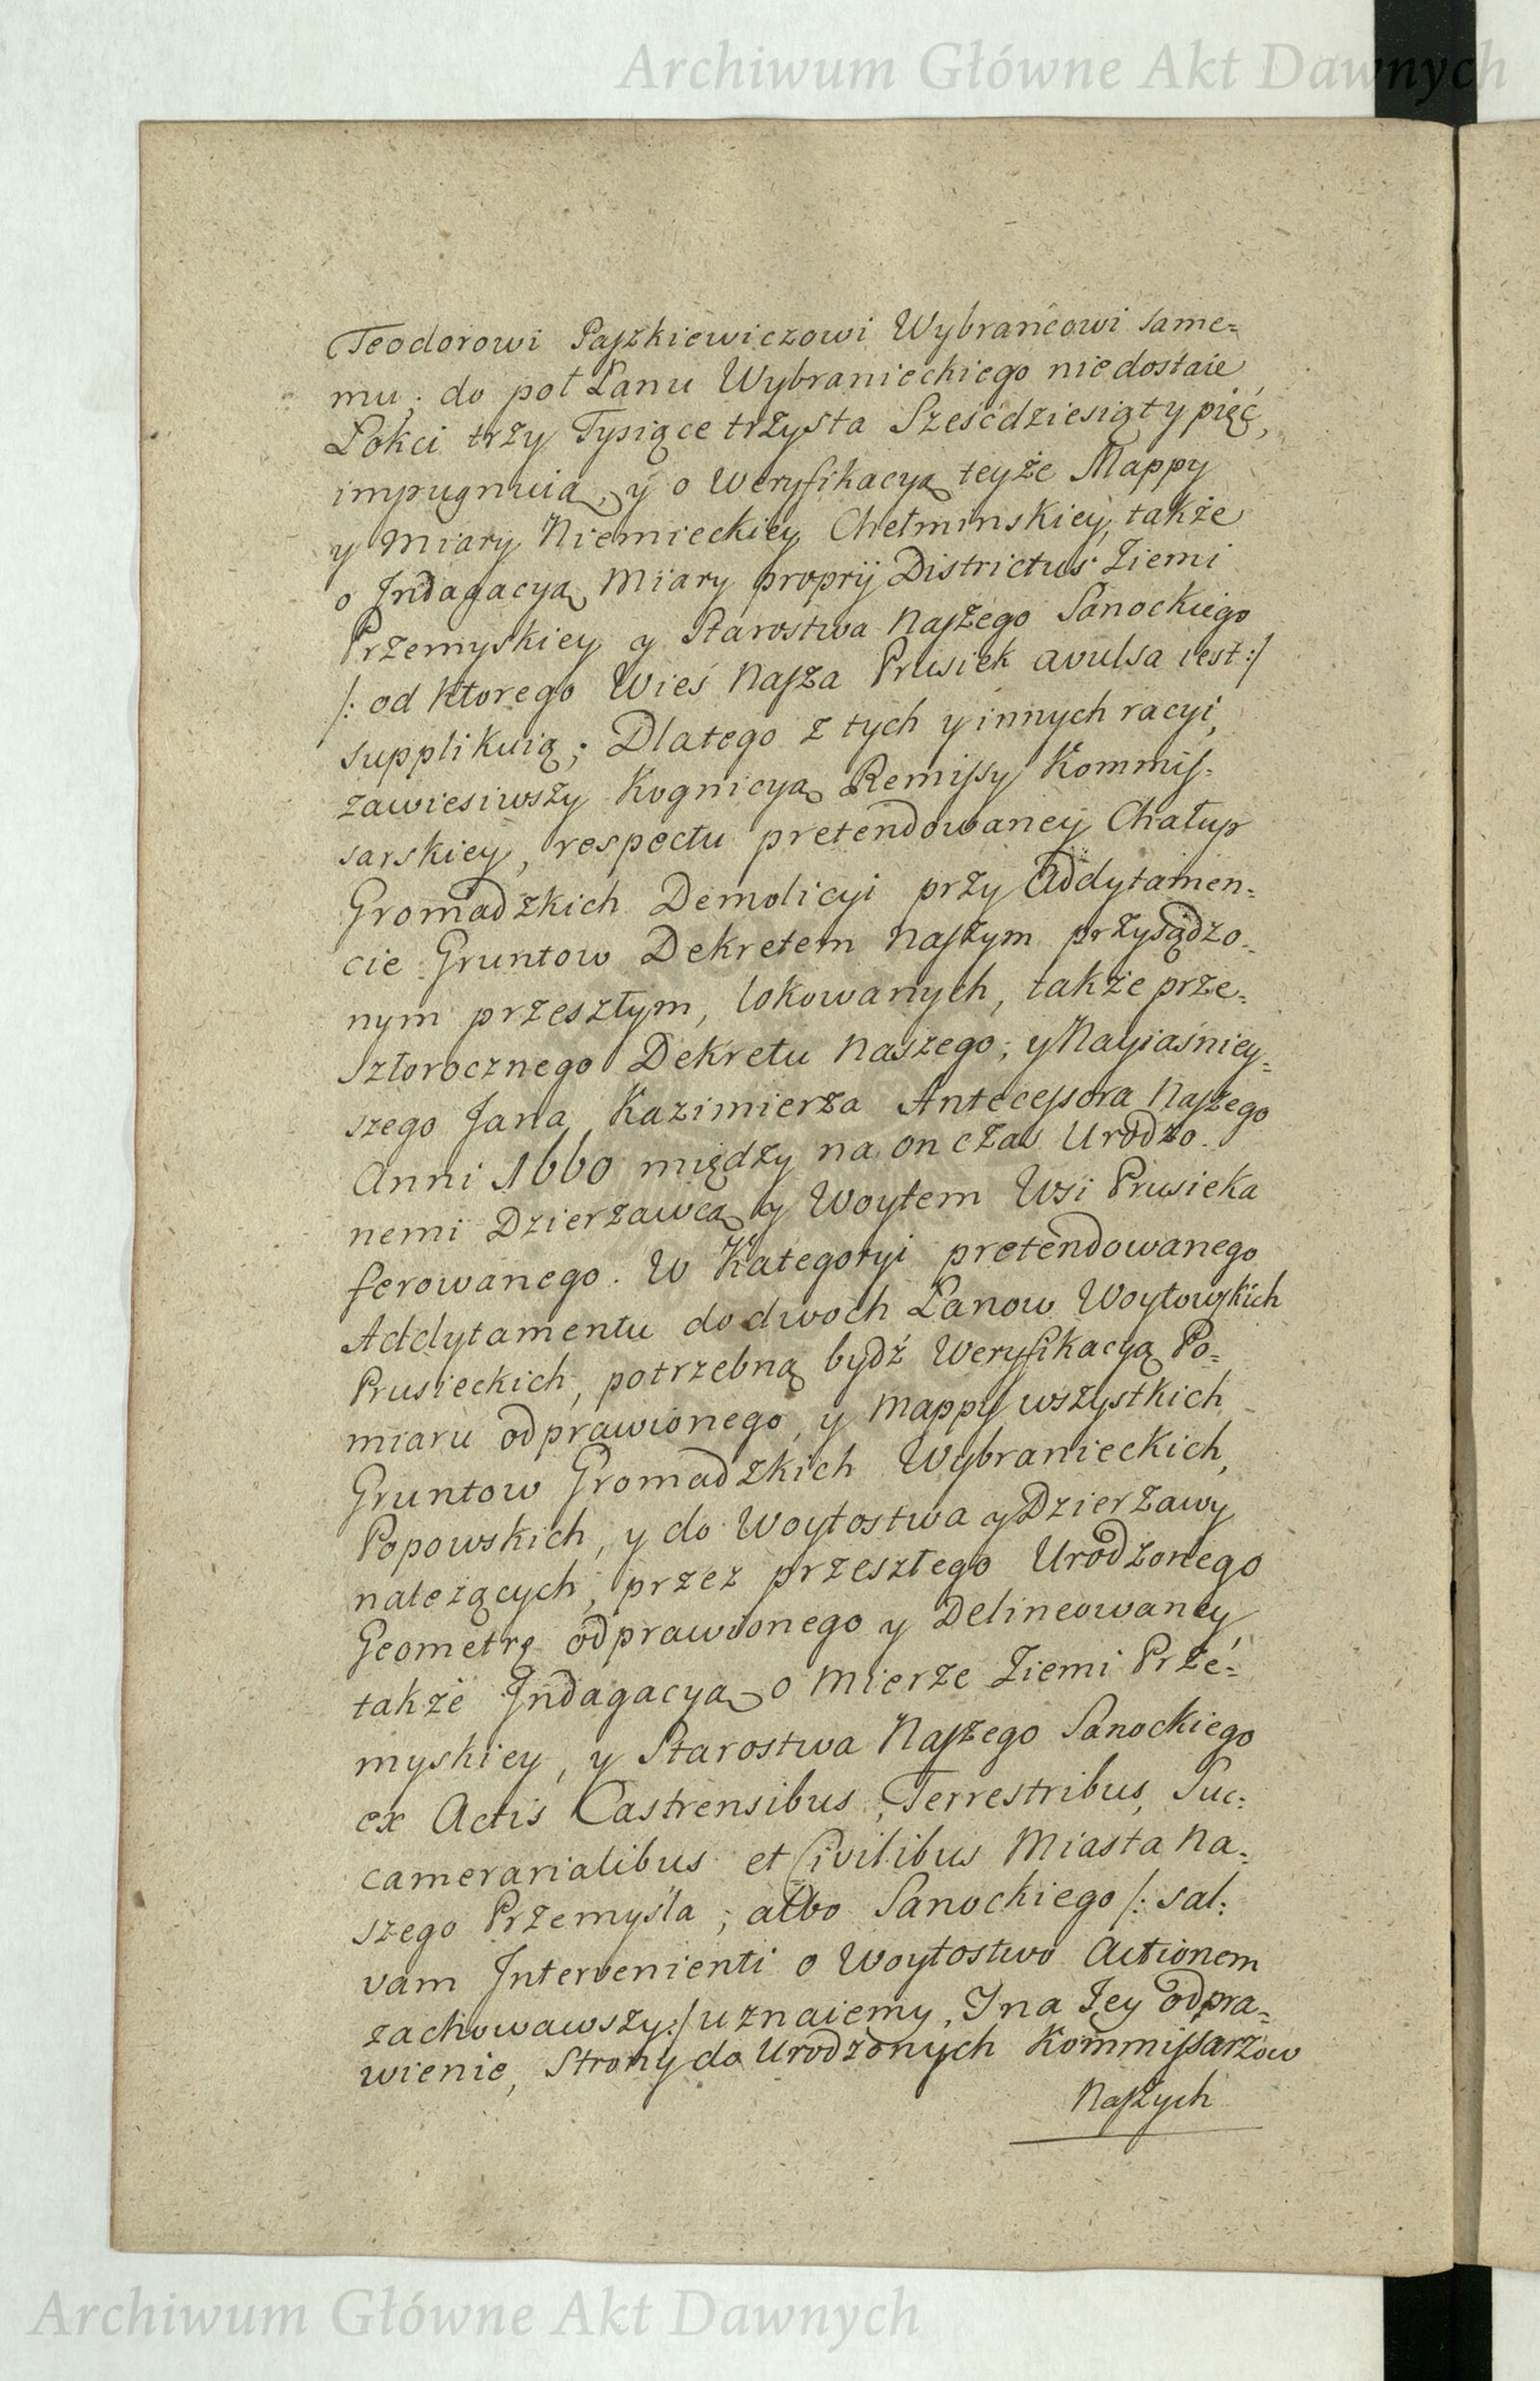 Archiwum Główne Akt Dawnych
Teodorowi Paszkiewiczowi Wybrańcowi same=
mu; do poł Łanu Wybranieckiego niedostaie
Łokci trzy Tysiące trzysta Sześćdziesiąt y pięć,
impugnuią, y o Weryfikacyą teyże Mappy
y Miary Niemieckiey Chełminskiey, także
o Indagacyą Miary proprij Districtus Ziemi
Przemyskiey y Starostwa Naszego Sanockiego
/: od ktorego Wieś Nasza Prusiek avulsa iest :/
supplikuią; Dlatego z tych y innych racyi,
zawiesiwszy Kognicyą Remissy Kommis=
sarskiey, respectu pretendowaney Chałup
Gromadzkich Demolicyi przy Addytamen=
cie Gruntow Dekretem Naszym przysądzo=
nym przeszłym, lokowanych, także prze=
szłorocznego Dekretu Naszego; y Nayiaśniey=
szego Jana Kazimierza Antecessora Naszego
Anni 1660 między na on czas Urodzo=
nemi Dzierzawcą y Woytem Wsi Prusieka
ferowanego. W Kategoryi pretendowanego
Addytamentu do dwoch Łanow Woytowskich
Prusieckich, potrzebną bydź Weryfikacyą Po=
miaru odprawionego, y Mappy wszystkich
Gruntow Gromadzkich Wybranieckich,
Popowskich, y do Woytostwa y Dzierzawy
należących, przez przeszłego Urodzonego
Geometrę odprawionego y Delineowaney
także Indagacyą o Mierze Ziemi Prze=
myskiey, y Starostwa Naszego Sanockiego
ex Actis Castrensibus, Terrestribus, Suc=
camerarialibus et Civilibus Miasta Na=
szego Przemyśla; albo Sanockiego /: sal=
vam Intervenienti o Woytostwo Actionem
zachowawszy :/ uznaiemy, I na Jey odpra=
wienie, Strony do Urodzonych Kommissarzow
Naszych
Archiwum Główne Akt Dawnych